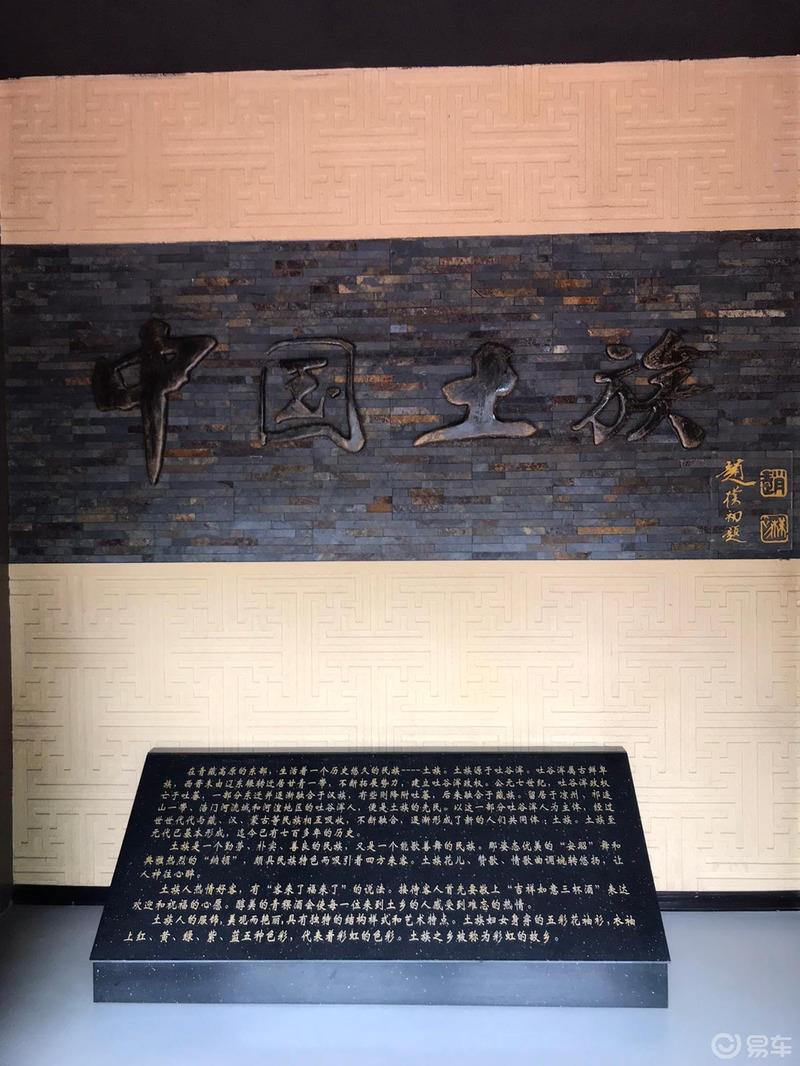 中国土族
趙樸初題
在青藏高原的东部，生活着一个历史悠久的民族----土族。土族源于吐谷浑。吐谷浑属古鲜卑
族，西晋末由辽东辗转迁居甘青一带，不断拓展势力，建立吐谷浑政权。公元七世纪，吐谷浑政权
亡于吐蕃，一部份东迁并逐渐融合于汉族，有些则降附吐蕃，后来融合于藏族，留居于凉州、祁连
山一带、浩门河流域和河湟地区的吐谷浑人，便是土族的先民。以这一部分吐谷浑人为主体，经过
世世代代与藏、汉、蒙古等民族相互吸收，不断融合，逐渐形成了新的人们共同体：土族。土族至
元代已基本形成，迄今已有七百多年的历史。
土族是一个勤劳、朴实、善良的民族，又是一个能歌善舞的民族。那姿态优美的“安昭”舞和
典雅热烈的“纳顿”，颇具民族特色而吸引着四方来客。土族花儿、赞歌、情歌曲调婉转悠扬，让
人神往心醉。
土族人热情好客，有“客来了福来了”的说法。接待客人首先要敬上“吉祥如意三杯酒”来达
欢迎和祝福的心愿。醇美的青稞酒会使每一位来到土乡的人感受到难忘的热情。
土族人的服饰，美观而艳丽，具有独特的结构样式和艺术特点。土族妇女身穿的五彩花袖衫，衣袖
上红、黄、绿、紫、蓝五种色彩，代表着彩虹的色彩。土族之乡被称为彩虹的故乡。
易车